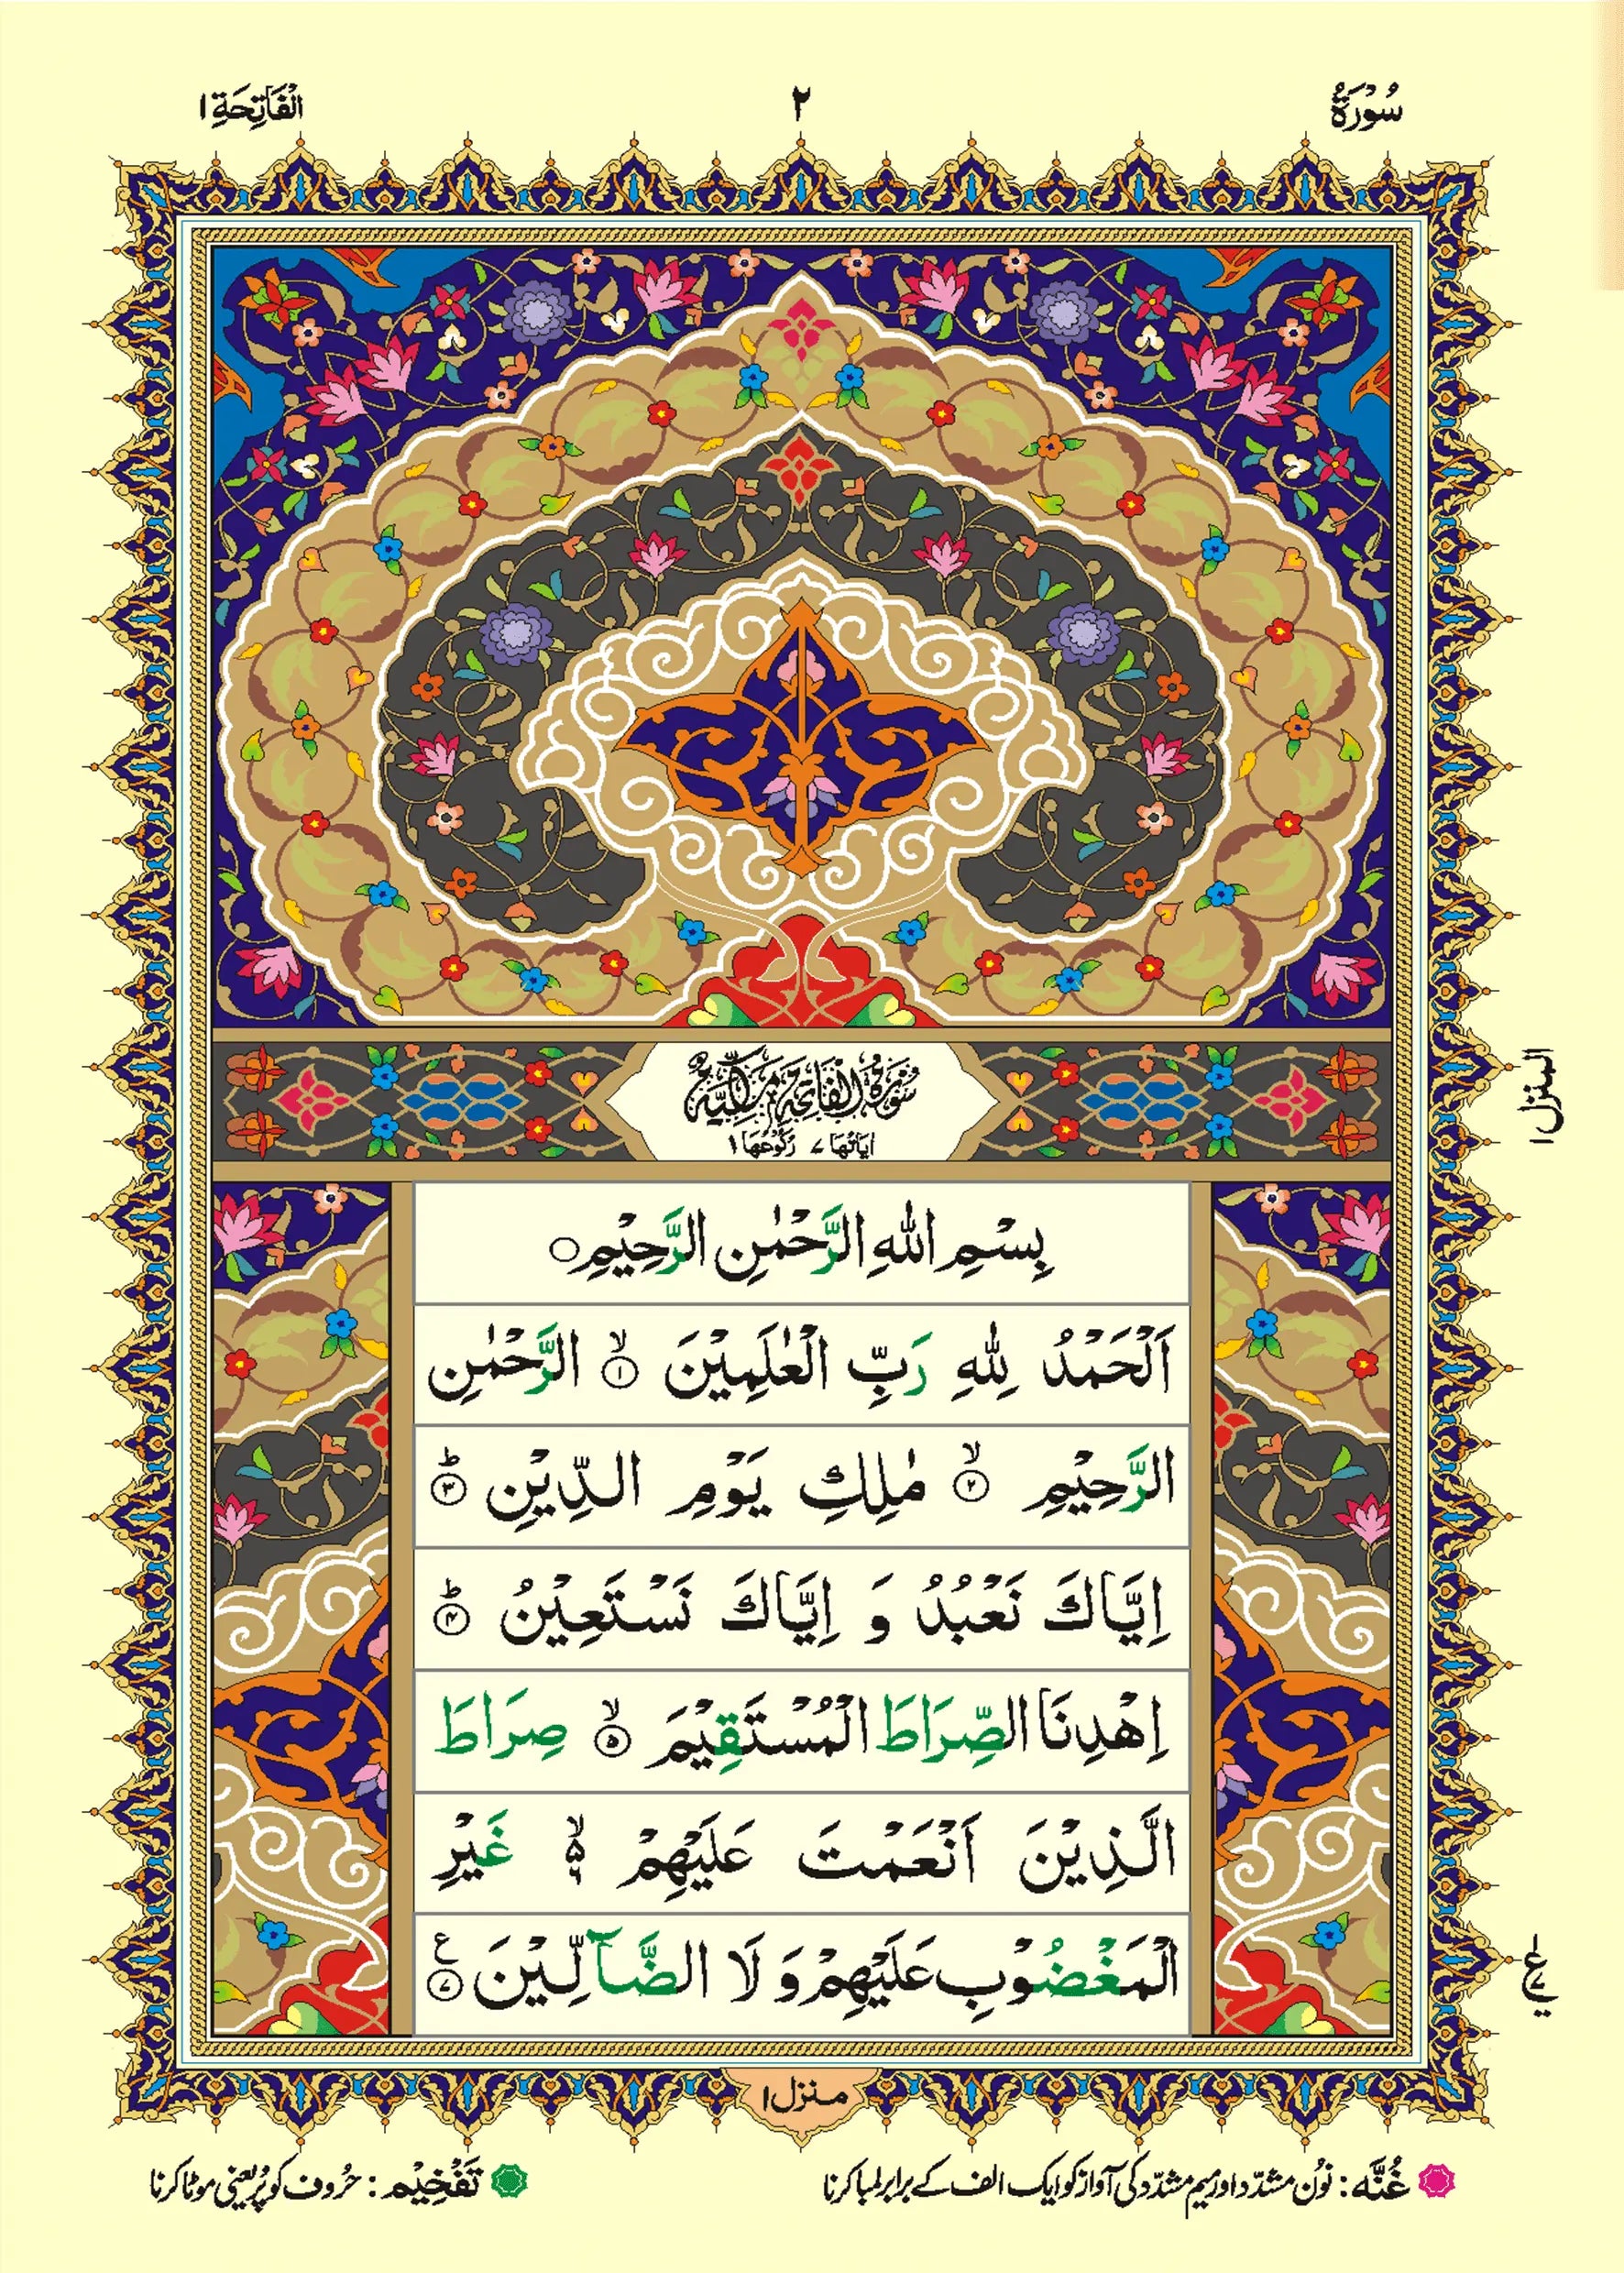 سُوْرَةُ ٢ الْفَاتِحَةِ ١
سُوْرَةُ الْفَاتِحَةِ مَكِّيَّةٌ
اٰيَاتُهَا ٧ رُكُوْعُهَا ١
بِسْمِ اللّٰهِ الرَّحْمٰنِ الرَّحِيْمِ ○
اَلْحَمْدُ لِلّٰهِ رَبِّ الْعٰلَمِيْنَ ۙ﴿۱﴾ الرَّحْمٰنِ
الرَّحِيْمِ ۙ﴿۲﴾ مٰلِكِ يَوْمِ الدِّيْنِ ؕ﴿۳﴾
اِيَّاكَ نَعْبُدُ وَ اِيَّاكَ نَسْتَعِيْنُ ؕ﴿۴﴾
اِهْدِنَا الصِّرَاطَ الْمُسْتَقِيْمَ ۙ﴿۵﴾ صِرَاطَ
الَّذِيْنَ اَنْعَمْتَ عَلَيْهِمْ ۙ۬ۦ۶ غَيْرِ
الْمَغْضُوْبِ عَلَيْهِمْ وَ لَا الضَّآلِّيْنَ ﴿۷﴾ ع
المنزل ١
منزل ١
غُنَّه: نوُن مشدّد اور میم مشدّد کی آواز کو ایک الف کے برابر لمبا کرنا
تَفْخِيْم: حُروف کو پُر یعنی موٹا کرنا